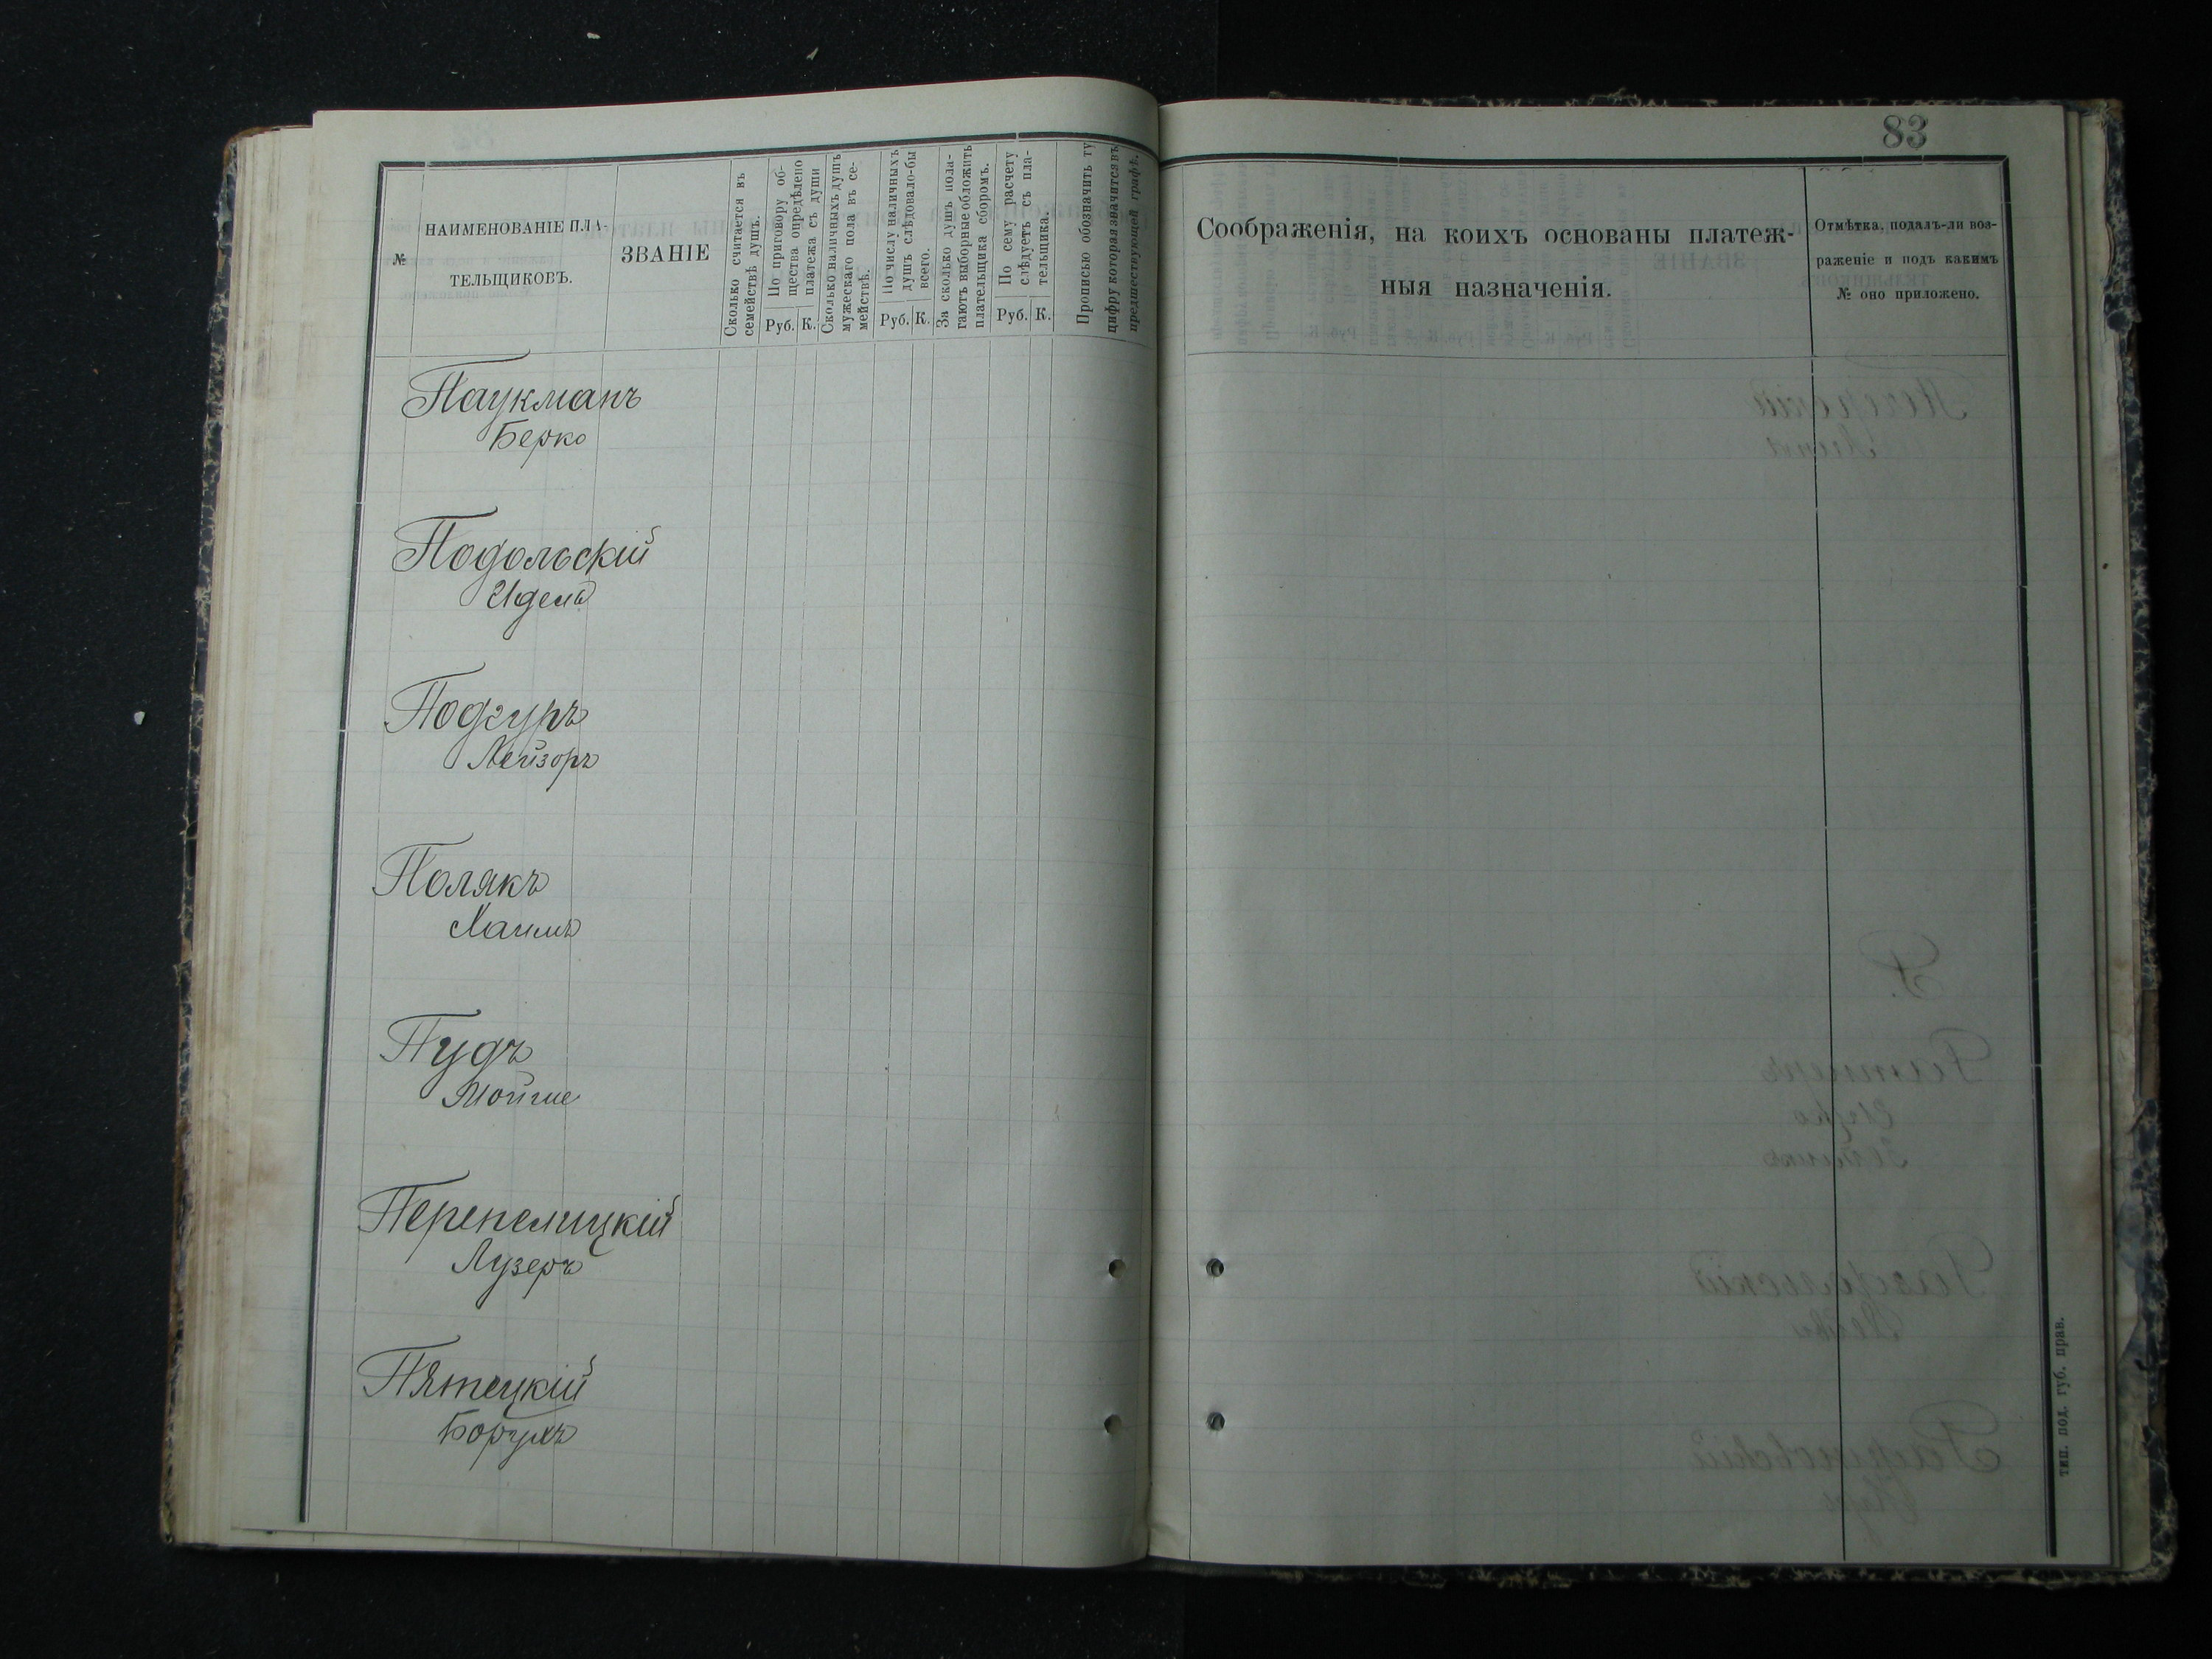 83
№
НАИМЕНОВАНІЕ ПЛА-
ТЕЛЬЩИКОВЪ.
ЗВАНІЕ
Сколько считается въ
семействѣ душъ.
По приговору об-
щества опредѣлено
платежа съ души
Руб. К.
Сколько наличныхъ душъ
мужескаго пола въ се-
мействѣ.
По числу наличныхъ
душъ слѣдовало-бы
всего.
Руб. К.
За сколько душъ пола-
гаютъ выборные обложить
плательщика сборомъ.
По сему расчету
слѣдуетъ съ пла-
тельщика.
Руб. К.
Прописью обозначить ту
цифру которая значится въ
предшествующей графѣ.
Соображенія, на коихъ основаны платеж-
ныя назначенія.
Отмѣтка, подалъ-ли воз-
раженіе и подъ какимъ
№ оно приложено.
Паукманъ
Берко
Подольскій
Идель
Подгуръ
Лейзоръ
Полякъ
Хаимъ
Пудъ
Мойше
Перепелицкій
Лузеръ
Пятецкій
Борухъ
тип. под. губ. прав.